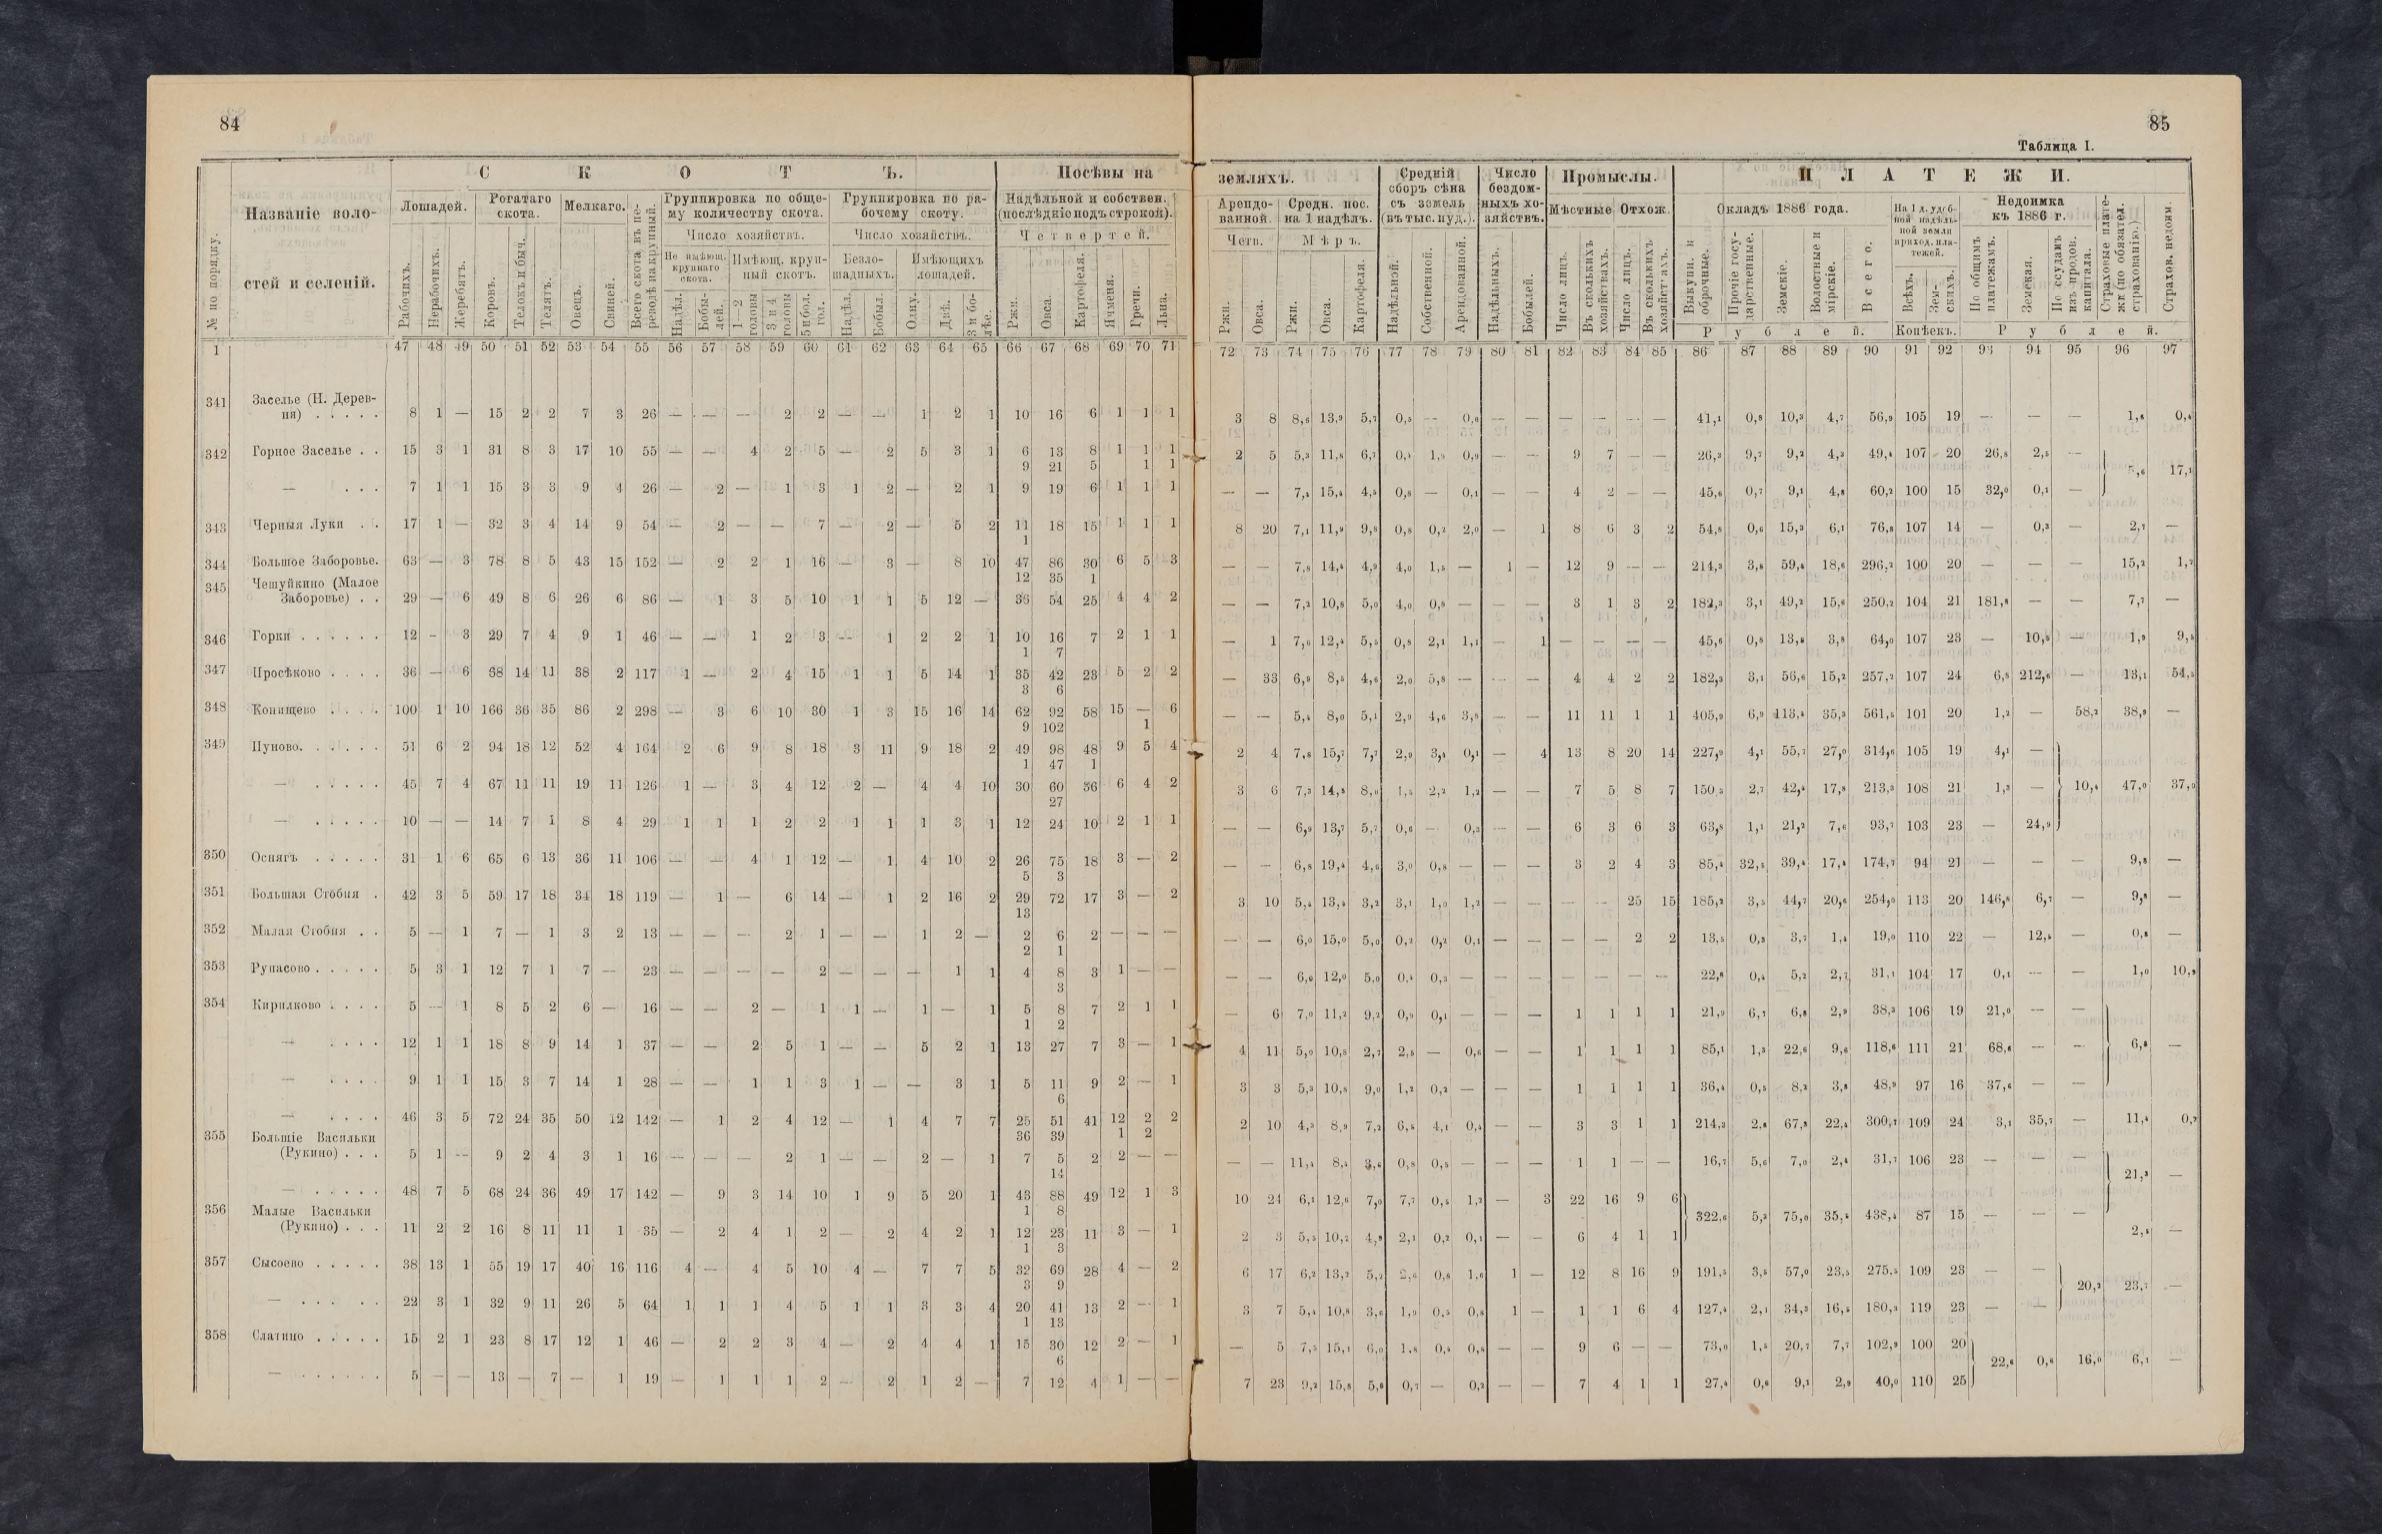 84
С К О Т Ъ.
Посѣвы на
№ по порядку.
Названіе воло-
стей и селеній.
Лошадей.
Рогатаго
скота.
Мелкаго.
Всего скота въ пе-
реводѣ на крупный.
Группировка по обще-
му количеству скота.
Группировка по ра-
бочему скоту.
Надѣльной и собствен.
(послѣдніе подъ строкой).
Число хозяйствъ.
Число хозяйствъ.
Четвертей.
Не имѣющ.
крупнаго
скота.
Имѣющ. круп-
ный скотъ.
Безло-
шадныхъ.
Имѣющихъ
лошадей.
Рабочихъ.
Нерабочихъ.
Жеребятъ.
Коровъ.
Телокъ и быч.
Телятъ.
Овецъ.
Свиней.
Надѣл.
Бобы-
лей.
1—2
головы
3 и 4
головы
5 и бол.
гол.
Надѣл.
Бобыл.
Одну.
Двѣ.
3 и бо-
лѣе.
Ржи.
Овса.
Картофеля.
Ячменя.
Гречи.
Льна.
1 47 48 49 50 51 52 53 54 55 56 57 58 59 60 61 62 63 64 65 66 67 68 69 70 71
341 Заселье (Н. Дерев-
ня) . . . . . 8 1 — 15 2 2 7 3 26 — — — 2 2 — — 1 2 1 10 16 6 1 1 1
342 Горное Заселье . . 15 3 1 31 8 3 17 10 55 — — 4 2 5 — 2 5 3 1 6 13 8 1 1 1
9 21 5 1 1
— . . . 7 1 1 15 3 3 9 4 26 — 2 — 1 3 1 2 — 2 1 9 19 6 1 1 1
343 Черныя Луки . . 17 1 — 32 3 4 14 9 54 — 2 — — 7 — 2 — 5 2 11 18 15 1 1 1
1
344 Большое Заборовье. 63 — 3 78 8 5 43 15 152 — 2 2 1 16 — 3 — 8 10 47 86 30 6 5 3
12 35 1
345 Чешуйкино (Малое
Заборовье) . . 29 — 6 49 8 6 26 6 86 — 1 3 5 10 1 1 5 12 — 36 54 25 4 4 2
346 Горки . . . . . . 12 - 3 29 7 4 9 1 46 — — 1 2 3 — 1 2 2 1 10 16 7 2 1 1
1 7
347 Просѣково . . . . 36 — 6 68 14 11 38 2 117 1 — 2 4 15 1 1 5 14 1 35 42 23 5 2 2
3 6
348 Конищево . . . . 100 1 10 166 36 35 86 2 298 — 3 6 10 30 1 3 15 16 14 62 92 58 15 — 6
9 102 1
349 Пуново. . . . . . 51 6 2 94 18 12 52 4 164 2 6 9 8 18 3 11 9 18 2 49 98 48 9 5 4
1 47 1
— . . . . . 45 7 4 67 11 11 19 11 126 1 — 3 4 12 2 — 4 4 10 30 60 36 6 4 2
27
— . . . . . 10 — — 14 7 1 8 4 29 1 1 1 2 2 1 1 1 3 1 12 24 10 2 1 1
350 Оснягъ . . . . . 31 1 6 65 6 13 36 11 106 — — 4 1 12 — 1 4 10 2 26 75 18 3 — 2
5 3
351 Большая Стобня . 42 3 5 59 17 18 34 18 119 — 1 — 6 14 — 1 2 16 2 29 72 17 3 — 2
13
352 Малая Стобня . . 5 — 1 7 — 1 3 2 13 — — — 2 1 — — 1 2 — 2 6 2 — — —
2 1
353 Рупасово . . . . . 5 3 1 12 7 1 7 — 23 — — — — 2 — — — 1 1 4 8 3 1 — —
3
354 Кирилково . . . . 5 — 1 8 5 2 6 — 16 — — 2 — 1 1 — 1 — 1 5 8 7 2 1 1
1 2
— . . . . 12 1 1 18 8 9 14 1 37 — — 2 5 1 — — 5 2 1 13 27 7 3 — 1
— . . . . 9 1 1 15 3 7 14 1 28 — — 1 1 3 1 — — 3 1 5 11 9 2 — 1
6
— . . . . 46 3 5 72 24 35 50 12 142 — 1 2 4 12 — 1 4 7 7 25 51 41 12 2 2
36 39 1 2
355 Большіе Васильки
(Рукино) . . . 5 1 — 9 2 4 3 1 16 — — — 2 1 — — 2 — 1 7 5 2 2 — —
14
— . . . . . 48 7 5 68 24 36 49 17 142 — 9 3 14 10 1 9 5 20 1 43 88 49 12 1 3
1 8
356 Малые Васильки
(Рукино) . . . 11 2 2 16 8 11 11 1 35 — 2 4 1 2 — 2 4 2 1 12 23 11 3 — 1
1 3
357 Сысоево . . . . . 38 13 1 55 19 17 40 16 116 4 — 4 5 10 4 — 7 7 5 32 69 28 4 — 2
3 9
— . . . . . 22 3 1 32 9 11 26 5 64 1 1 1 4 5 1 1 3 3 4 20 41 13 2 — 1
1 13
358 Слатино . . . . . 15 2 1 23 8 17 12 1 46 — 2 2 3 4 — 2 4 4 1 15 30 12 2 — 1
6
— . . . . . . 5 — — 13 — 7 — 1 19 — 1 1 1 2 — 2 1 2 — 7 12 4 1 — —
85
Таблица I.
земляхъ.
Средній
сборъ сѣна
съ земель
(въ тыс. пуд.).
Число
бездом-
ныхъ хо-
зяйствъ.
Промыслы.
П Л А Т Е Ж И.
Арендо-
ванной.
Средн. пос.
на 1 надѣлъ.
Мѣстные
Отхож.
Окладъ 1886 года.
На 1 д. удоб-
ной надѣль-
ной земли
приход. пла-
тежей.
Недоимка
къ 1886 г.
Страховые плате-
жи (по обязател.
страхованію.)
Страхов. недоим.
Четв.
Мѣръ.
Ржи.
Овса.
Ржи.
Овса.
Картофеля.
Надѣльной.
Собственной.
Арендованной.
Надѣльныхъ.
Бобылей.
Число лицъ.
Въ сколькихъ
хозяйствахъ.
Число лицъ.
Въ сколькихъ
хозяйствахъ.
Выкупн. и
оброчные.
Прочіе госу-
дарственные.
Земскіе.
Волостные и
мірскіе.
Всего.
Всѣхъ.
Зем-
скихъ.
По общимъ
платежамъ.
Земская.
По ссудамъ
изъ продов.
капитала.
Рублей.
Копѣекъ.
Рублей.
72 73 74 75 76 77 78 79 80 81 82 83 84 85 86 87 88 89 90 91 92 93 94 95 96 97
3 8 8,6 13,9 5,7 0,5 — 0,6 — — — — — — 41,1 0,8 10,3 4,7 56,9 105 19 — — — 1,8 0,4
2 5 5,3 11,8 6,7 0,4 1,9 0,9 — — 9 7 — — 26,3 9,7 9,2 4,3 49,4 107 20 26,8 2,5 —
5,6 17,1
— — 7,4 15,4 4,5 0,8 — 0,1 — — 4 2 — — 45,6 0,7 9,1 4,8 60,2 100 15 32,0 0,1 —
8 20 7,1 11,9 9,8 0,8 0,2 2,0 — 1 8 6 3 2 54,8 0,6 15,3 6,1 76,8 107 14 — 0,3 — 2,7 —
— — 7,8 14,4 4,9 4,0 1,5 — 1 — 12 9 — — 214,3 3,8 59,4 18,6 296,2 100 20 — — — 15,2 1,2
— — 7,2 10,8 5,0 4,0 0,8 — — — 3 1 3 2 182,3 3,1 49,2 15,6 250,2 104 21 181,8 — — 7,7 —
— 1 7,6 12,4 5,5 0,8 2,1 1,1 — 1 — — — — 45,6 0,8 13,8 3,8 64,0 107 23 — 10,5 — 1,9 9,5
— 33 6,9 8,5 4,6 2,0 5,8 — — — 4 4 2 2 182,3 3,1 56,6 15,2 257,2 107 24 6,8 212,6 — 13,1 54,5
— — 5,4 8,0 5,1 2,9 4,6 3,9 — — 11 11 1 1 405,9 6,9 113,4 35,3 561,5 101 20 1,2 — 58,2 38,9 —
2 4 7,8 15,7 7,7 2,9 3,4 0,1 — 4 13 8 20 14 227,9 4,1 55,7 27,0 314,6 105 19 4,1 —
3 6 7,3 14,8 8,9 1,5 2,2 1,2 — — 7 5 8 7 150,3 2,7 42,4 17,8 213,3 108 21 1,3 — 10,4 47,0 37,0
— — 6,9 13,7 5,7 0,6 — 0,3 — — 6 3 6 3 63,8 1,1 21,2 7,6 93,7 103 23 — 24,9
— — 6,8 19,4 4,6 3,0 0,8 — — — 3 2 4 3 85,4 32,5 39,4 17,4 174,7 94 21 — — — 9,8 —
3 10 5,4 13,4 3,2 3,1 1,0 1,2 — — — — 25 15 185,2 3,5 44,7 20,6 254,0 113 20 146,8 6,7 — 9,8 —
— — 6,0 15,0 5,0 0,2 0,2 0,1 — — — — 2 2 13,5 0,3 3,7 1,4 19,0 110 22 — 12,4 — 0,8 —
— — 6,0 12,0 5,0 0,4 0,3 — — — — — — — 22,8 0,4 5,2 2,7 31,1 104 17 0,1 — — 1,0 10,9
— 6 7,0 11,2 9,2 0,9 0,1 — — — 1 1 1 1 21,9 6,7 6,8 2,9 38,3 106 19 21,0 — —
4 11 5,0 10,8 2,7 2,5 — 0,6 — — 1 1 1 1 85,1 1,3 22,6 9,6 118,6 111 21 68,6 — — 6,8
3 3 5,3 10,8 9,0 1,2 0,2 — — — 1 1 1 1 36,4 0,5 8,2 3,8 48,9 97 16 37,6 — —
2 10 4,3 8,9 7,2 6,8 4,1 0,4 — — 3 3 1 1 214,3 2,8 67,8 22,4 300,7 109 24 3,1 35,7 — 11,4 0,7
— — 11,4 8,4 3,6 0,8 0,5 — — — 1 1 — — 16,7 5,6 7,0 2,4 31,7 106 23 — — —
21,3 —
10 24 6,1 12,6 7,0 7,7 0,4 1,2 — 3 22 16 9 6
322,6 5,2 75,0 35,4 438,4 87 15 — — —
2 3 5,5 10,2 4,9 2,1 0,2 0,1 — — 6 4 1 1 2,8 —
6 17 6,2 13,2 5,2 2,6 0,8 1,6 1 — 12 8 16 9 191,5 3,5 57,0 23,5 275,5 109 23 — —
20,2 23,7 —
3 7 5,4 10,8 3,6 1,9 0,5 0,8 1 — 1 1 6 4 127,4 2,1 34,3 16,5 180,3 119 23 — —
— 5 7,5 15,1 6,0 1,8 0,4 0,8 — — 9 6 — — 73,0 1,5 20,7 7,7 102,9 100 20
22,6 0,6 16,0 6,1 —
7 23 9,2 15,8 5,6 0,7 — 0,2 — — 7 4 1 1 27,4 0,6 9,1 2,9 40,0 110 25